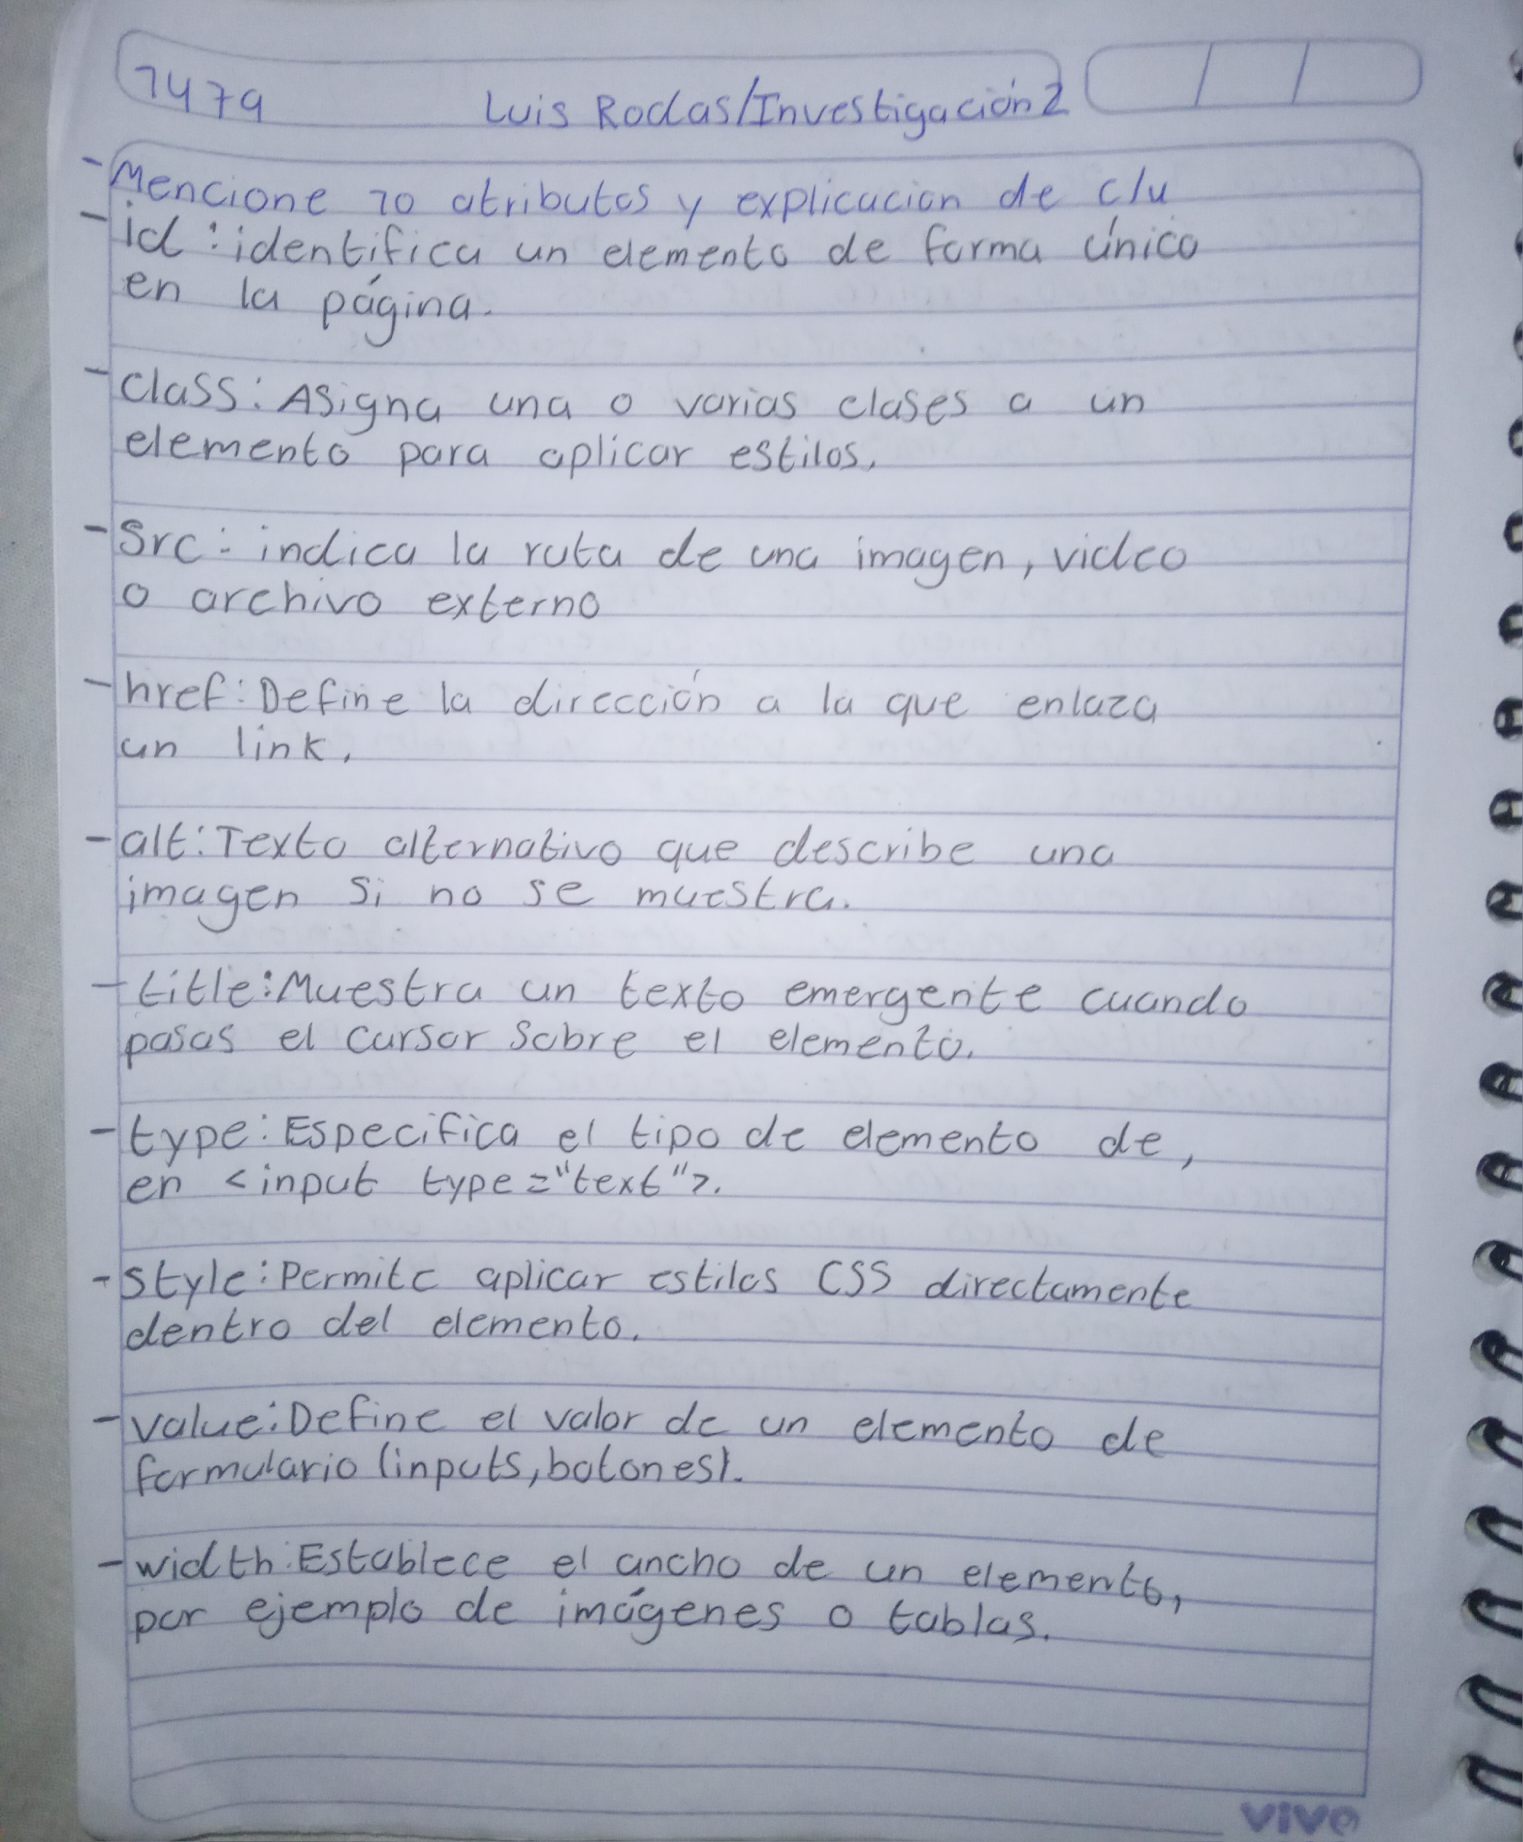 7479
Luis Rodas/Investigación 2
- Mencione 10 atributos y explicacion de c/u
- id: identifica un elemento de forma único
en la página.
- class: Asigna una o varias clases a un
elemento para aplicar estilos.
- Src: indica la ruta de una imagen, video
o archivo externo
- href: Define la dirección a la que enlaza
un link.
- alt: Texto alternativo que describe una
imagen si no se muestra.
- title: Muestra un texto emergente cuando
pasas el cursor sobre el elemento.
- type: Especifica el tipo de elemento de,
en <input type="text">.
- Style: Permite aplicar estilos CSS directamente
dentro del elemento.
- value: Define el valor de un elemento de
formulario (inputs, botones).
- width: Establece el ancho de un elemento,
por ejemplo de imágenes o tablas.
vivo